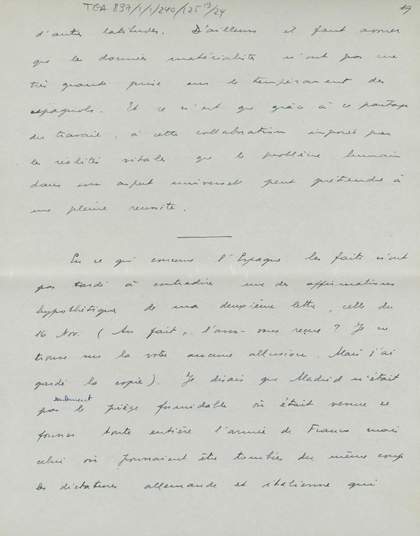 TGA 839/1/1/240/125 B/24
19
d'autres latitudes. D'ailleurs il faut avouer
que les données matérialistes n'ont pas une
très grande prise sur le tempérament des
espagnols. Et ce n'est que grâce à ce partage
du travail, à cette collaboration imposée par
la réalité vitale que le problème humain
dans son aspect universel peut prétendre à
une pleine réussite.
En ce qui concerne l'Espagne les faits n'ont
pas tardé à contredire une des affirmations
hypothétiques de ma deuxième lettre, celle du
16 Nov. (Au fait, l'avez-vous reçue? Je ne
trouve sur la votre aucune allusion. Mais j'ai
gardé la copie). Je disais que Madrid n'était
pas seulement le piège formidable où était venue se
fourrer toute entière l'armée de Franco mais
celui où pourraient être tombées du même coup
les dictatures allemande et italienne qui